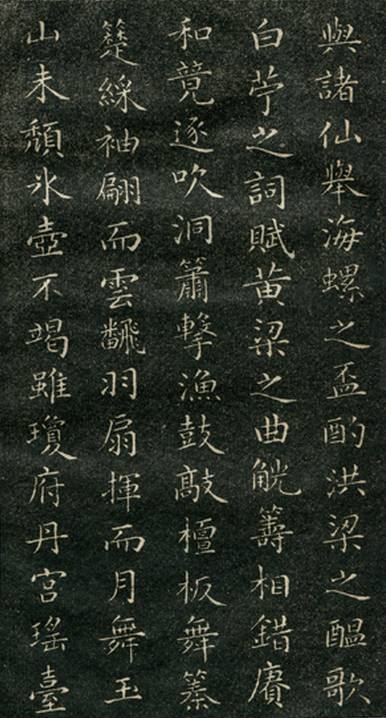 與諸仙舉海螺之盃酌洪梁之醞歌
白苧之詞賦黃梁之曲觥籌相錯賡
和竟逐吹洞簫擊漁鼓敲檀板舞
綵袖翩而雲飜羽扇揮而月舞玉
山未頹氷壺不竭雖瓊府丹宮瑤臺